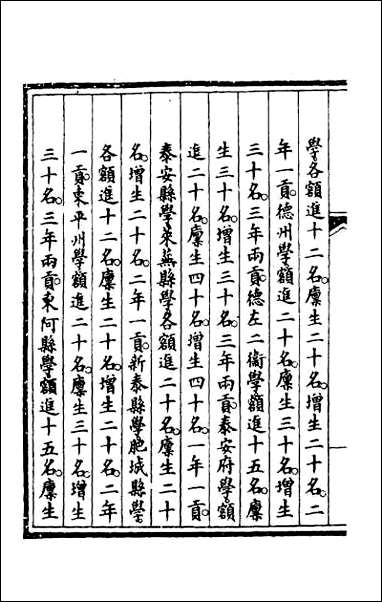 學各額進十二名廩生二十名增生二十名二
年一貢德州學額進二十名廩生三十名增生
三十名三年兩貢德左二衞學額進十五名廩
生三十名增生三十名三年兩貢泰安府學額
進二十名廩生四十名增生四十名一年一貢
泰安縣學萊蕪縣學各額進二十名廩生二十
名增生二十名二年一貢新泰縣學肥城縣學
各額進十二名廩生二十名增生二十名二年
一貢東平州學額進二十名廩生三十名增生
三十名三年兩貢東阿縣學額進十五名廩生